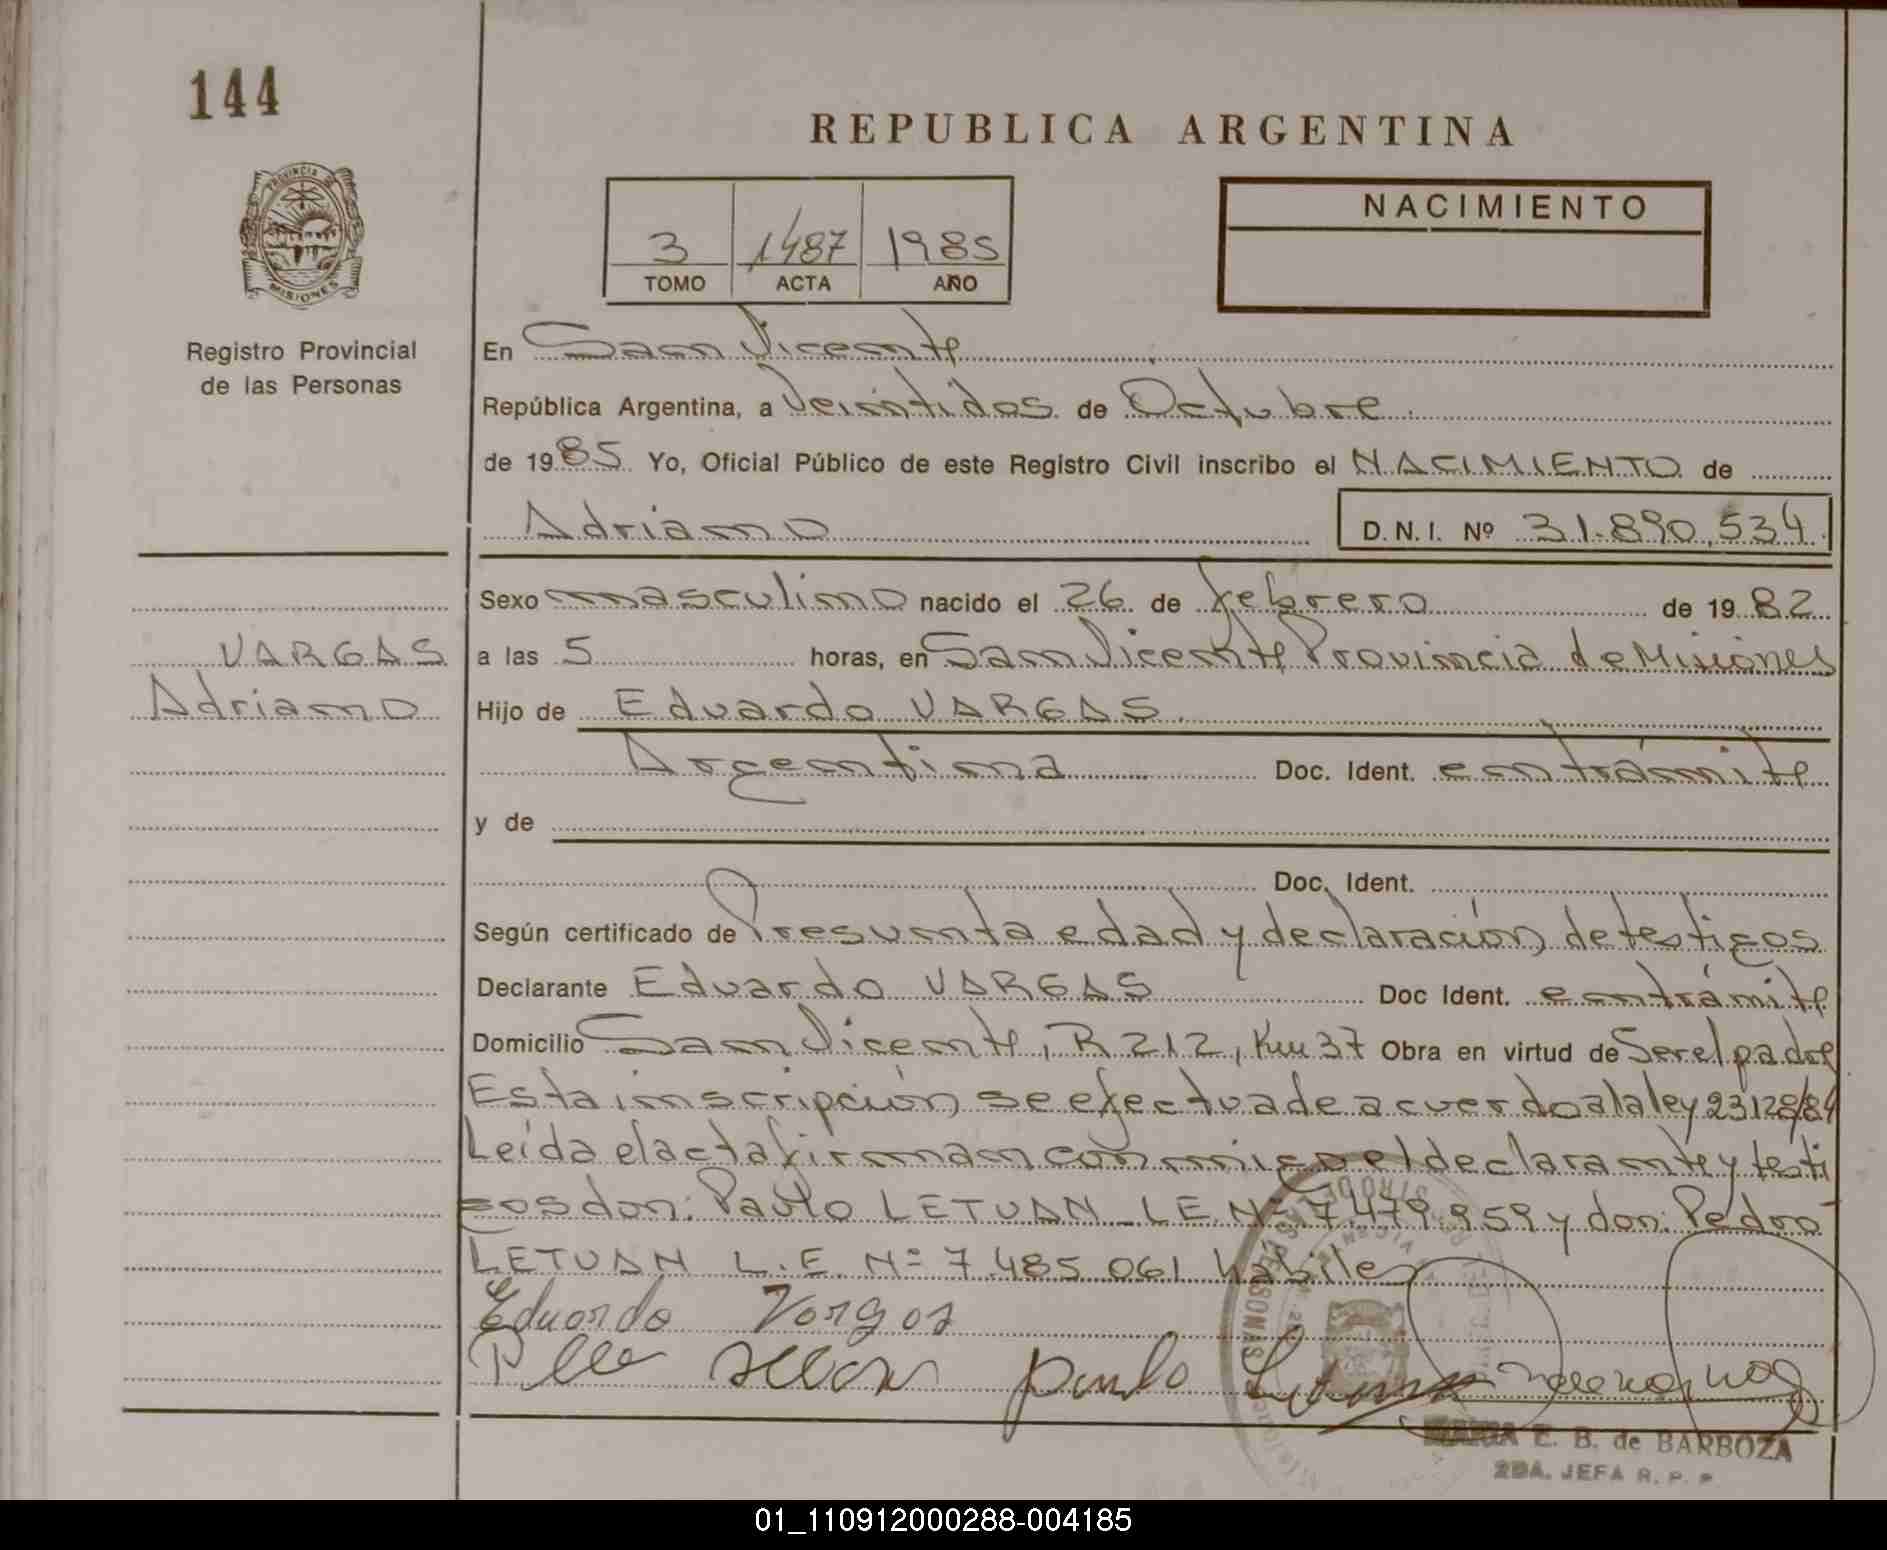 144
REPUBLICA ARGENTINA
PROVINCIA DE
MISIONES
Registro Provincial
de las Personas
3 1487 1985
TOMO ACTA AÑO
NACIMIENTO
En San Vicente
República Argentina, a Veintidos de Octubre
de 1985 Yo, Oficial Público de este Registro Civil inscribo el NACIMIENTO de
Adriano D.N.I. Nº 31.890.534
Sexo masculino nacido el 26 de febrero de 1982
VARGAS
Adriano
a las 5 horas, en San Vicente Provincia de Misiones
Hijo de Eduardo VARGAS
Argentina Doc. Ident. en trámite
y de
Doc. Ident.
Según certificado de Presunta edad y declaración de testigos
Declarante Eduardo VARGAS Doc Ident. en trámite
Domicilio San Vicente, R 212, Km 37 Obra en virtud de Ser el padre
Esta inscripción se efectua de acuerdo a la ley 23128/84
Leída el acta firman conmigo el declarante y testi
gos don: Paulo LETUAN L.E. Nº 7.479.959 y don: Pedro
LETUAN L.E. Nº 7.485.061 hábiles
Eduardo Vargas
paulo
MARIA E. B. de BARBOZA
2DA. JEFA R. P. P.
01_110912000288-004185